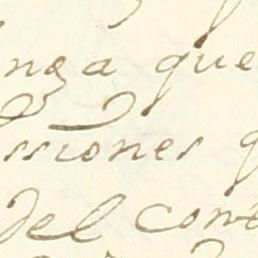 nga que
ssiones q
del cont